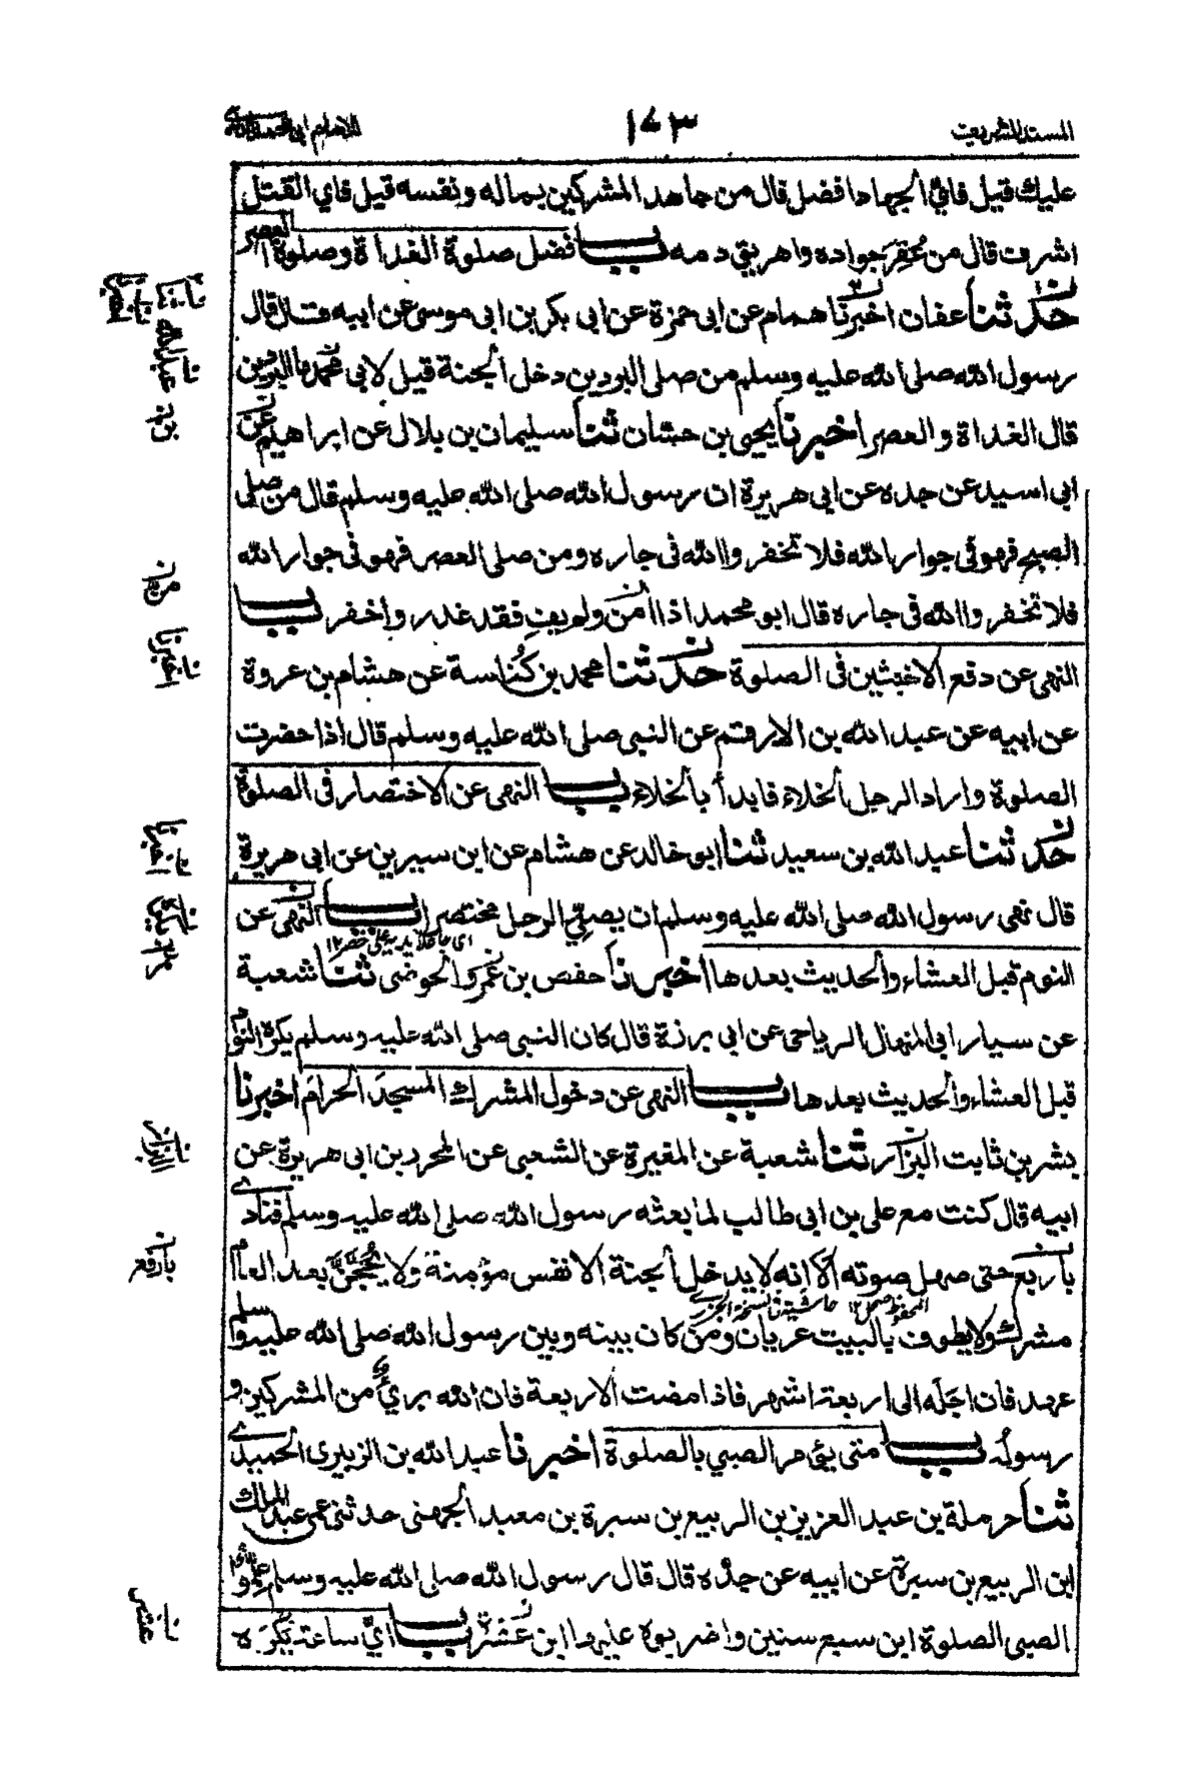 المسند الشريف
١٧٣
عليك قيل فاي الجهاد افضل قال من جاهد المشركين بماله ونفسه قيل فاي القتل
اشرف قال من عُقِرَ جواده واهريق دمه باب فضل صلوة الغداة وصلوة العصر
حدثنا عفان اخبرنا همام عن ابى حمزة عن ابى بكر بن ابى موسى عن ابيه قال قال
رسول الله صلى الله عليه وسلم من صلى البردين دخل الجنة قيل لابى محمد ما البردين
قال الغداة والعصر اخبرنا يحيى بن حسان ثنا سليمان بن بلال عن ابراهيم عن
ابى اسيد عن جده عن ابى هريرة ان رسول الله صلى الله عليه وسلم قال من صلى
الصبح فهو فى جوار الله فلا تخفر والله فى جاره ومن صلى العصر فهو فى جوار الله
فلا تخفر والله فى جاره قال ابو محمد اذا امن ولم يفِ فقد غدر واخفر باب
النهى عن دفع الاخبثين فى الصلوة حدثنا محمد بن كُناسة عن هشام بن عروة
عن ابيه عن عبد الله بن الارقم عن النبى صلى الله عليه وسلم قال اذا حضرت
الصلوة واراد الرجل الخلاء فابدأ بالخلاء باب النهى عن الاختصار فى الصلوة
حدثنا عبد الله بن سعيد ثنا ابو خالد عن هشام عن ابن سيرين عن ابى هريرة
قال نهى رسول الله صلى الله عليه وسلم ان يصلِّى الرجل مختصرا باب النهى عن
النوم قبل العشاء والحديث بعدها اخبرنا حفص بن عمر الحوضى ثنا شعبة
عن سيار ابى المنهال الرياحى عن ابى برزة قال كان النبى صلى الله عليه وسلم يكره النوم
قبل العشاء والحديث بعدها باب النهى عن دخول المشرك المسجدَ الحرامَ اخبرنا
بشر بن ثابت البزار ثنا شعبة عن المغيرة عن الشعبى عن المحرر بن ابى هريرة عن
ابيه قال كنت مع على بن ابى طالب لما بعثه رسول الله صلى الله عليه وسلم فنادى
باربع حتى صهل صوته الا انه لا يدخل الجنة الا نفس مؤمنة ولا يحجنَّ بعد العام
مشرك ولا يطوف بالبيت عريان ومن كان بينه وبين رسول الله صلى الله عليه وسلم
عهد فان اجله الى اربعة اشهر فاذا مضت الاربعة فان الله برئ من المشركين و
رسوله باب متى يؤمر الصبي بالصلوة اخبرنا عبد الله بن الزبيرى الحميدى
ثنا حرملة بن عبد العزيز بن الربيع بن سبرة بن معبد الجهنى حدثنى عمى عبد الملك
ابن الربيع بن سبرة عن ابيه عن جده قال قال رسول الله صلى الله عليه وسلم علموا
الصبى الصلوة ابن سبع سنين واضربوه عليها ابن عشر باب اىُّ ساعة يكره